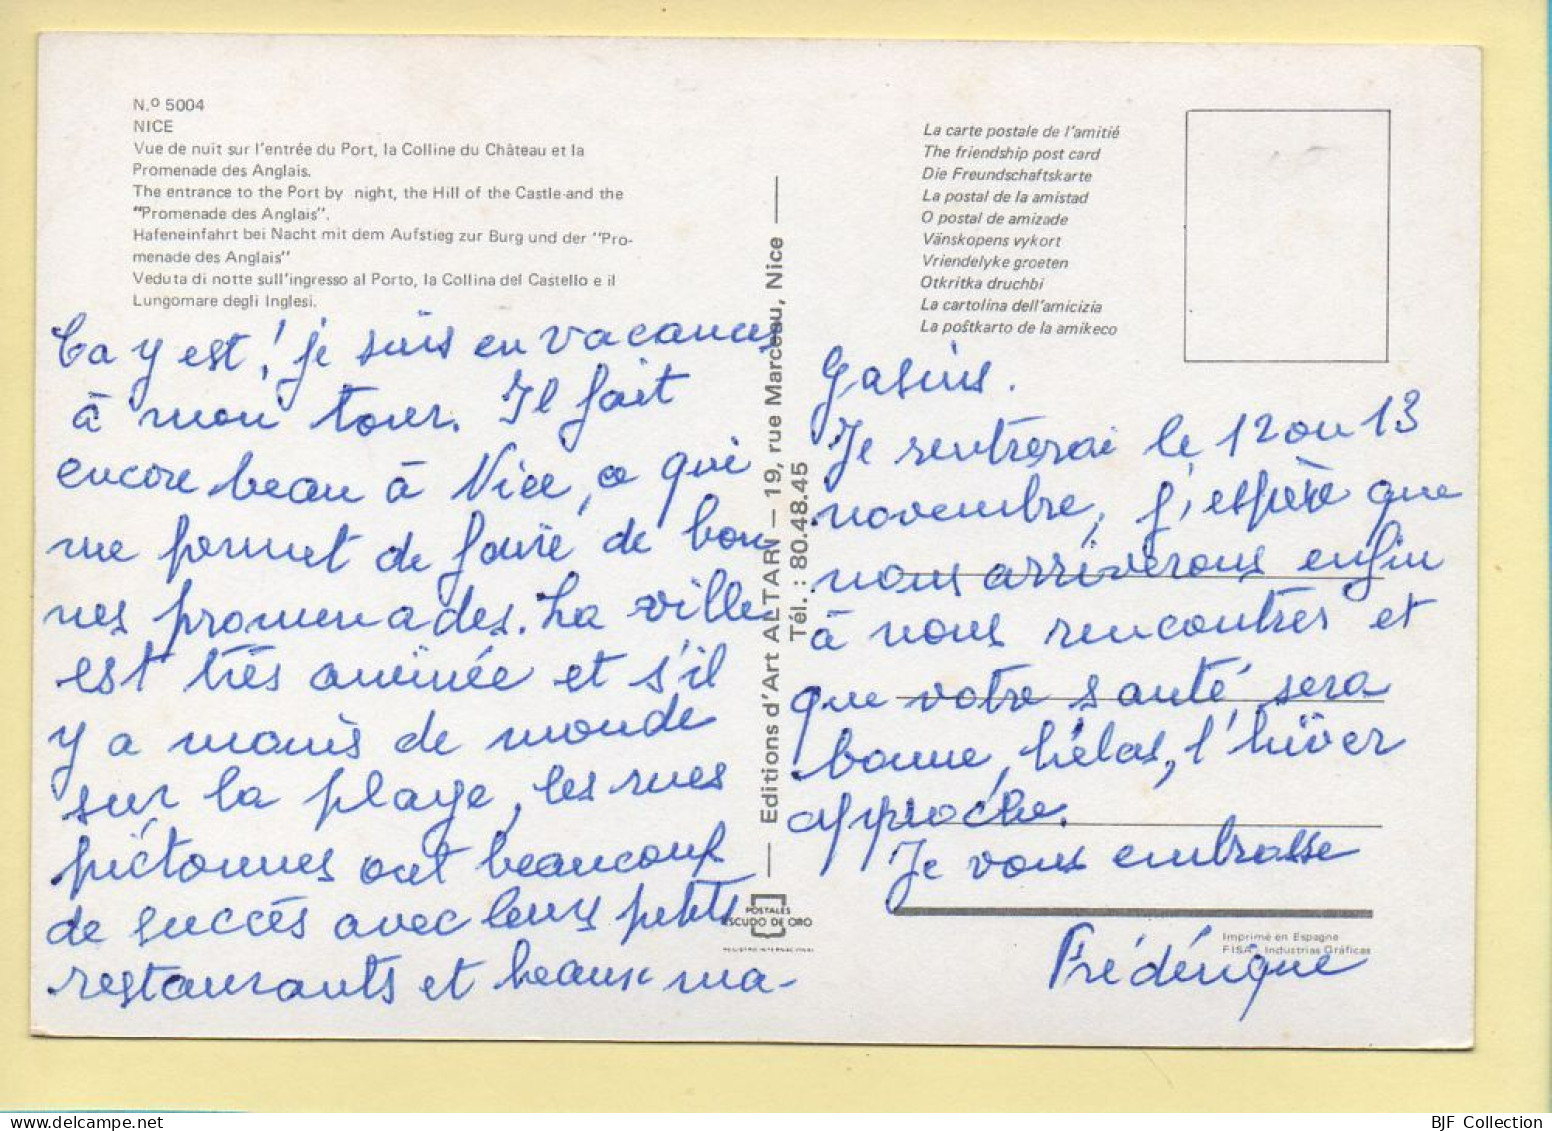 N.º 5004
NICE
Vue de nuit sur l'entrée du Port, la Colline du Château et la
Promenade des Anglais.
The entrance to the Port by night, the Hill of the Castle and the
"Promenade des Anglais".
Hafeneinfahrt bei Nacht mit dem Aufstieg zur Burg und der "Pro-
menade des Anglais"
Veduta di notte sull'ingresso al Porto, la Collina del Castello e il
Lungomare degli Inglesi.
Ça y est ! je suis en vacances
à mon tour. Il fait
encore beau à Nice, ce qui
me permet de faire de bon
nes promenades. La ville
est très animée et s'il
y a moins de monde
sur la plage, les rues
piétonnes ont beaucoup
de succès avec leurs petits
restaurants et beaux ma-
Editions d'Art ALTARI – 19, rue Marceau, Nice
Tél. : 80.48.45
POSTALES
ESCUDO DE ORO
REGISTRO INTERNACIONAL
La carte postale de l'amitié
The friendship post card
Die Freundschaftskarte
La postal de la amistad
O postal de amizade
Vänskopens vykort
Vriendelyke groeten
Otkritka druchbi
La cartolina dell'amicizia
La poŝtkarto de la amikeco
gasins.
Je rentrerai le 12 ou 13
novembre, j'espère que
nous arriverons enfin
à nous rencontrer et
que votre santé sera
bonne, hélas, l'hiver
approche.
Je vous embrasse
Frédérique
Imprimé en Espagne
FISA - Industrias Gráficas
BJF Collection